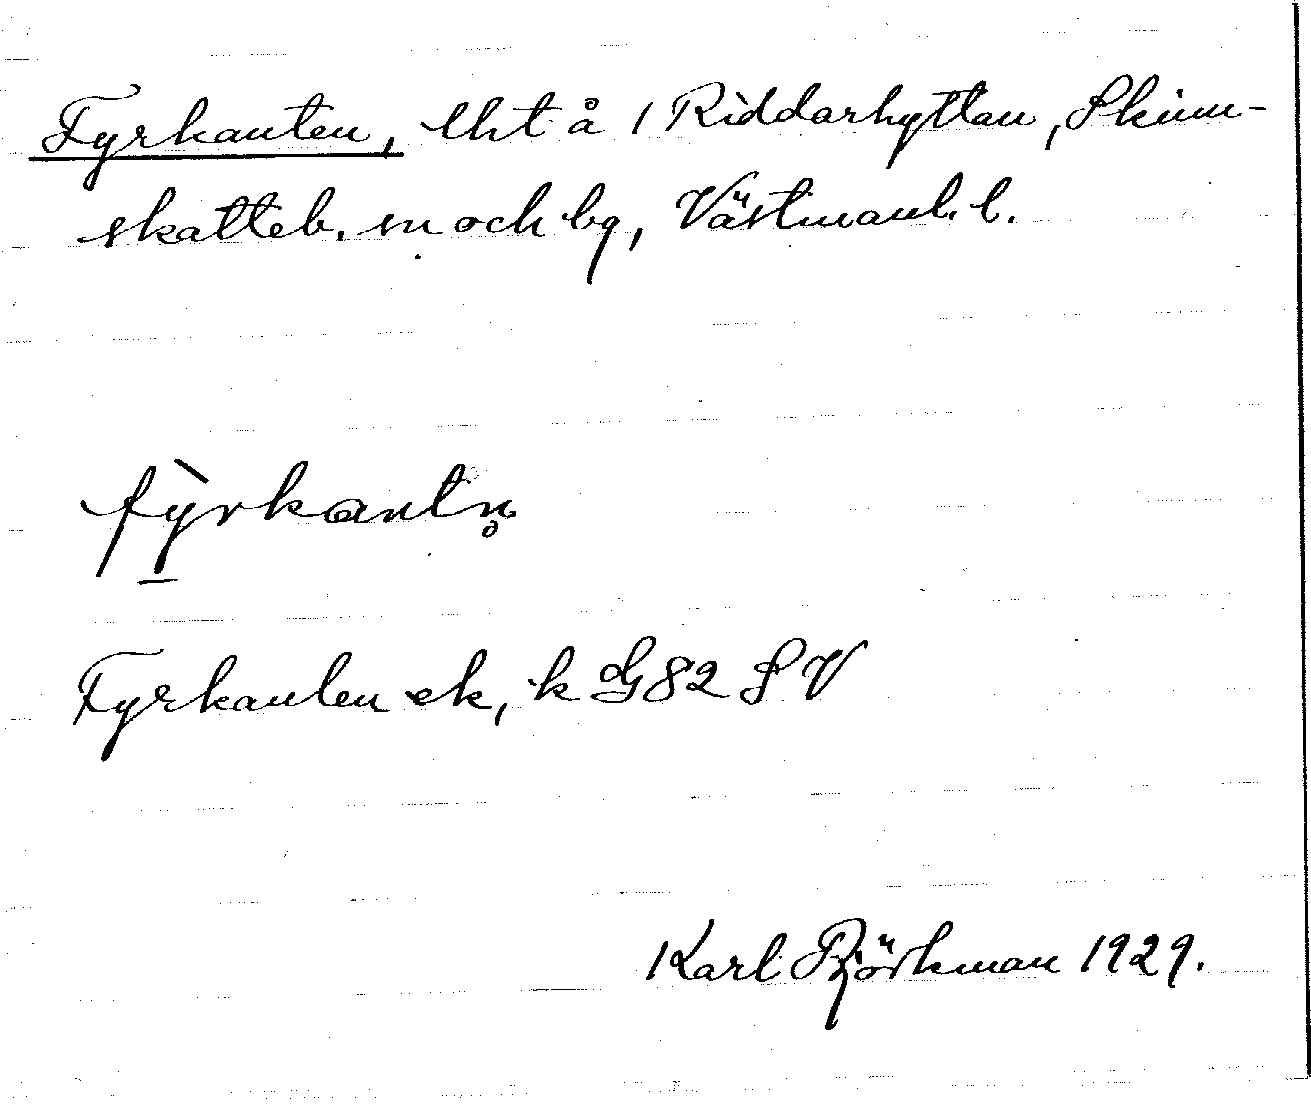 Fyrkanten, lht å 1 Riddarhyttan, Skinn-
skatteb. sn och bg, Västmanl. l.
fỳ̠rkantn̥
Fyrkanten ek, k G82 S V
Karl Björkman 1929.